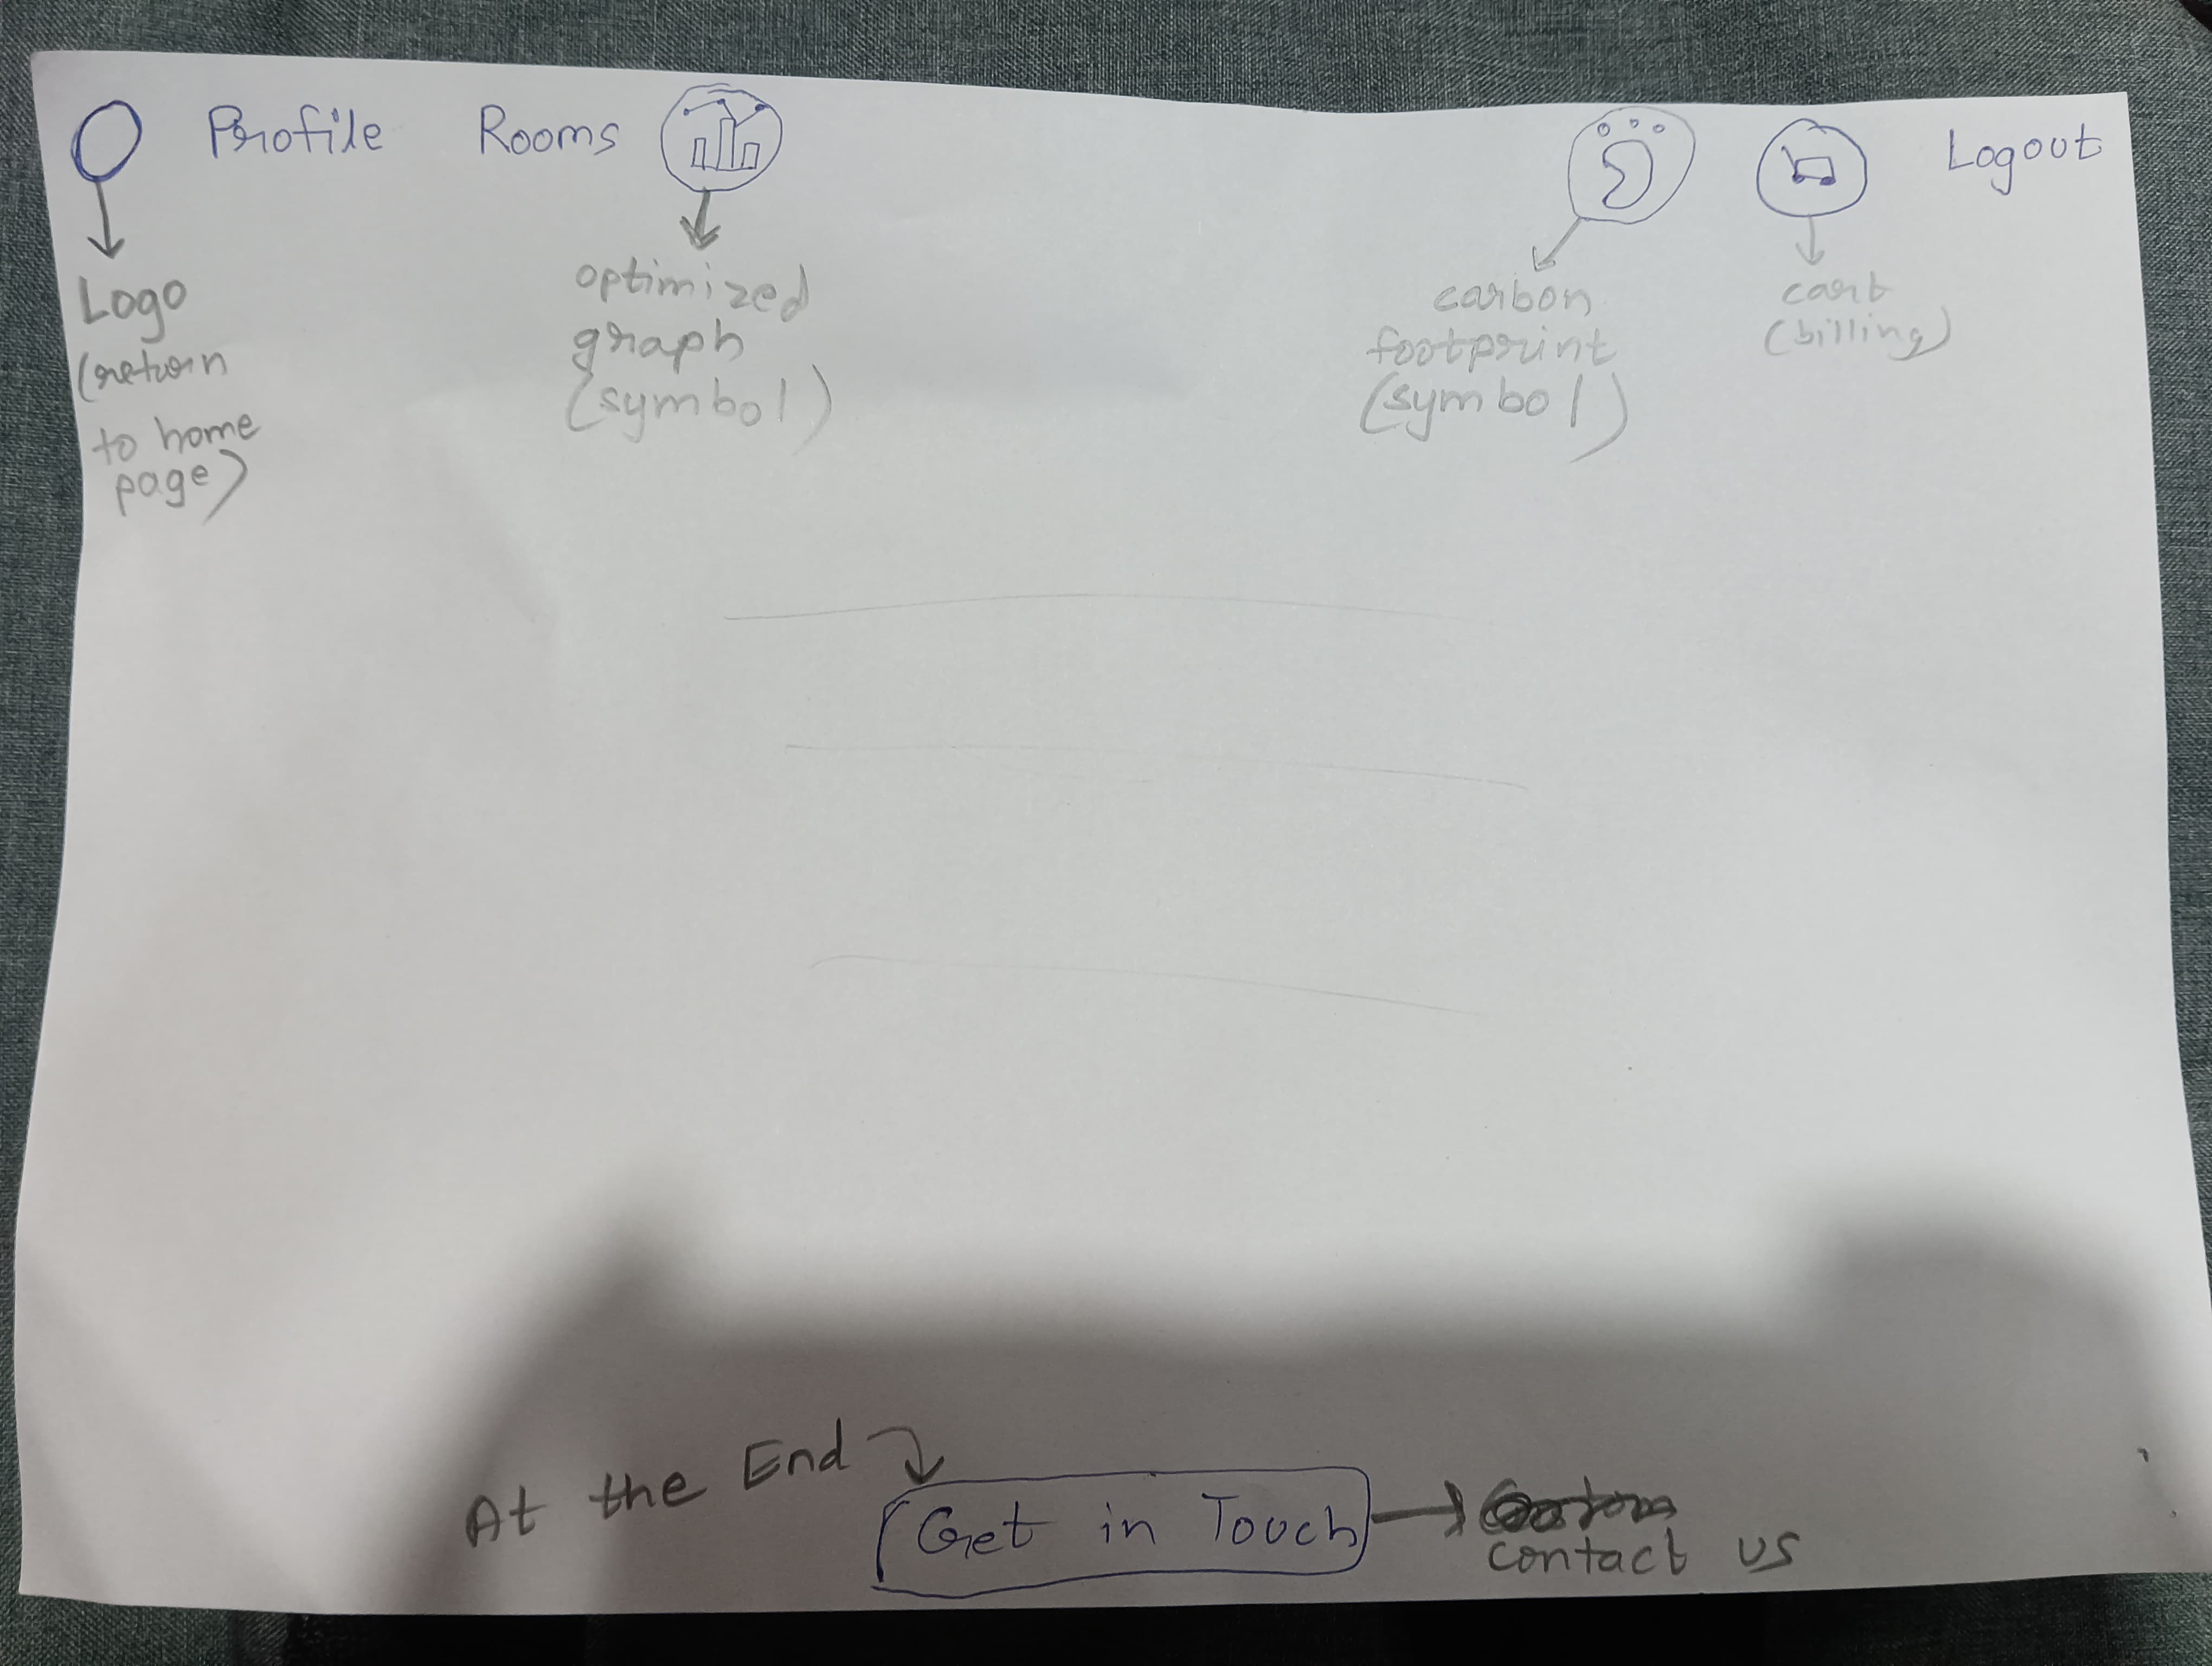 Profile Rooms Logout
Logo
(return
to home
page)
optimized
graph
(symbol)
carbon
footprint
(symbol)
cart
(billing)
At the End
Get in Touch
contact us